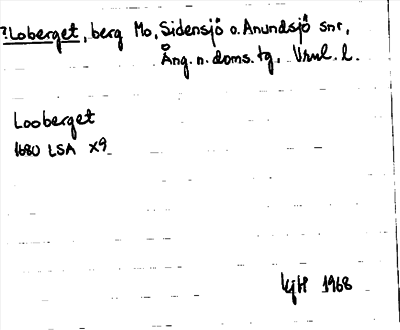 ?Loberget, berg Mo, Sidensjö o. Anundsjö snr,
Ång. n. doms. tg. Vnul. l.
Looberget
1680 LSA X9
KjH 1968